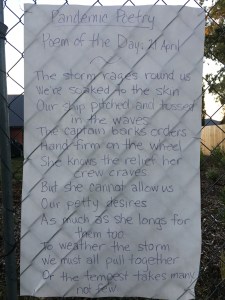 Pandemic Poetry
Poem of the Day: 21 April
The storm rages round us
We're soaked to the skin
Our ship pitched and tossed
in the waves
The captain barks orders
Hand firm on the wheel
She knows the relief her
crew craves
But she cannot allow us
Our petty desires
As much as she longs for
them too
To weather the storm
We must all pull together
Or the tempest takes many
not few